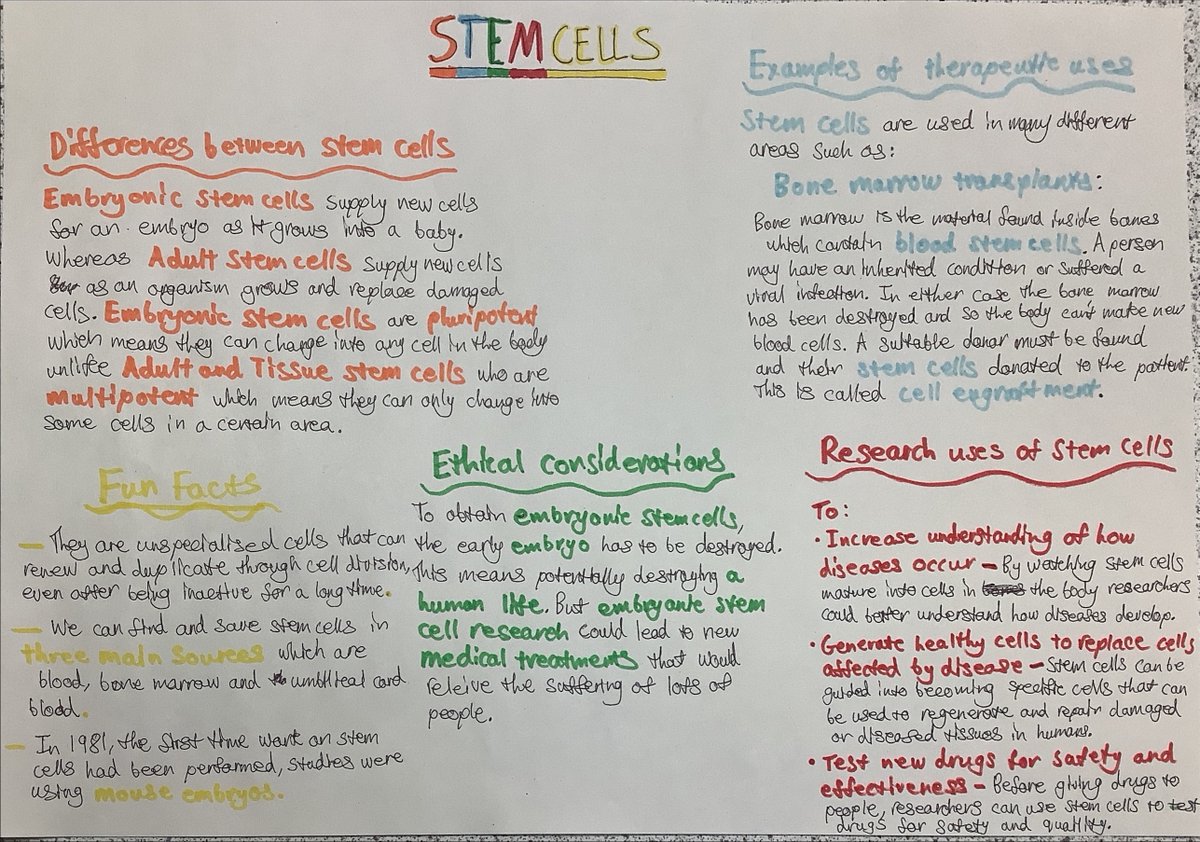 STEM CELLS
Differences between stem cells
Embryonic stem cells supply new cells
for an embryo as it grows into a baby.
whereas Adult stem cells supply new cells
as an organism grows and replace damaged
cells. Embryonic stem cells are pluripotent
which means they can change into any cell in the body
unlike Adult and Tissue stem cells who are
multipotent which means they can only change into
some cells in a certain area.
Examples of therapeutic uses
Stem cells are used in many different
areas such as:
Bone marrow transplants:
Bone marrow is the material found inside bones
which contain blood stem cells. A person
may have an inherited condition or suffered a
viral infection. In either case the bone marrow
has been destroyed and so the body can't make new
blood cells. A suitable donor must be found
and their stem cells donated to the patient.
This is called cell engraftment.
Fun Facts
- They are unspecialised cells that can
renew and duplicate through cell division,
even after being inactive for a long time.
- We can find and save stem cells in
three main sources which are
blood, bone marrow and umbilical cord
blood.
- In 1981, the first time work on stem
cells had been performed, studies were
using mouse embryos.
Ethical considerations
To obtain embryonic stem cells,
the early embryo has to be destroyed.
This means potentially destroying a
human life. But embryonic stem
cell research could lead to new
medical treatments that would
releive the suffering of lots of
people.
Research uses of stem cells
To:
• Increase understanding of how
diseases occur - By watching stem cells
mature into cells in the body researchers
could better understand how diseases develop.
• Generate healthy cells to replace cells
affected by disease - Stem cells can be
guided into becoming specific cells that can
be used to regenerate and repair damaged
or diseased tissues in humans.
• Test new drugs for safety and
effectiveness - Before giving drugs to
people, researchers can use stem cells to test
drugs for safety and quality.